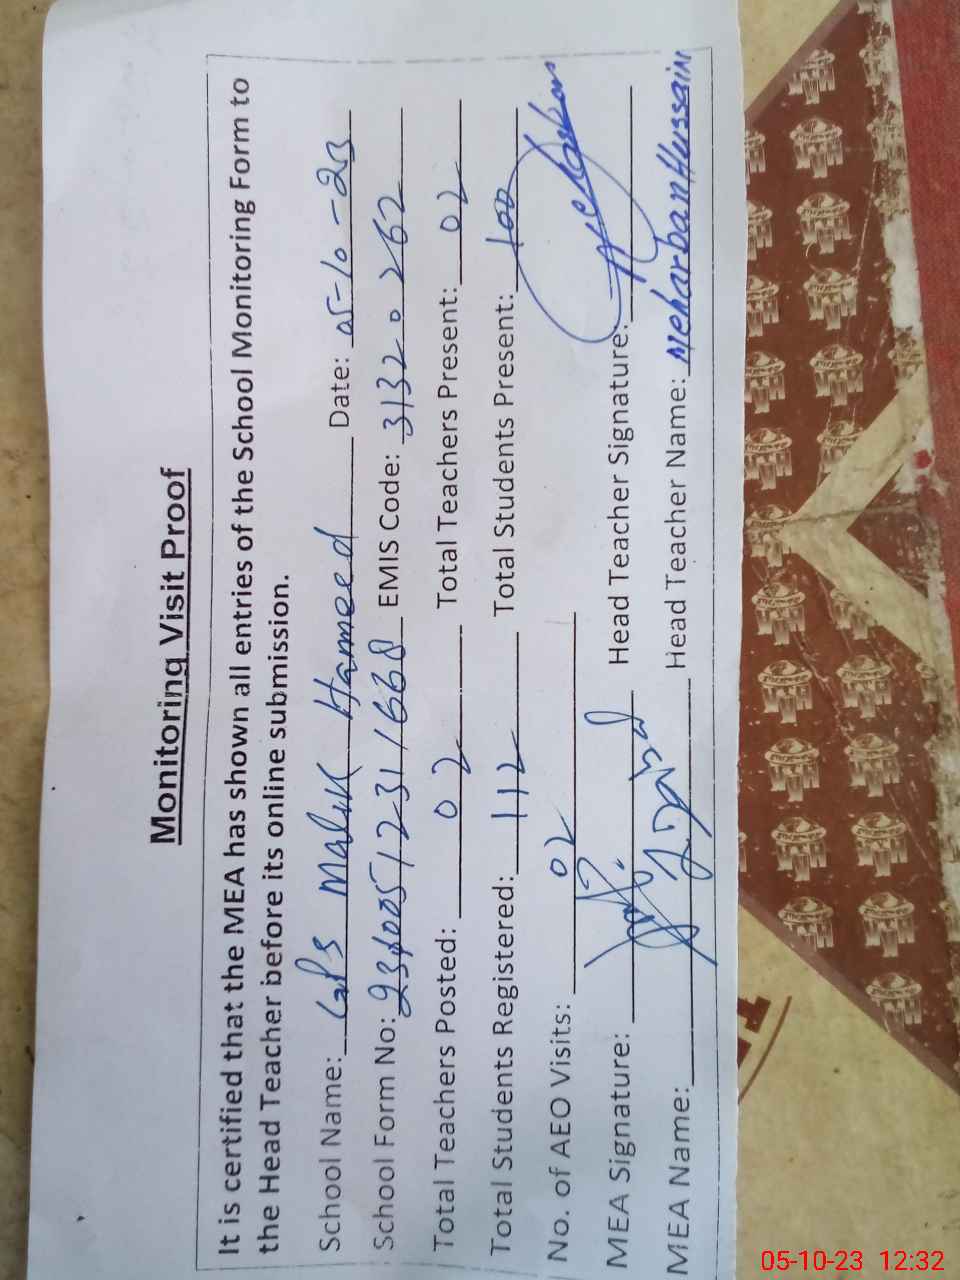 Monitoring Visit Proof
It is certified that the MEA has shown all entries of the School Monitoring Form to
the Head Teacher before its online submission.
School Name: GPS Malik Hameed Date: 05-10-23
School Form No: EMIS Code: 31320262
Total Teachers Posted: 02 Total Teachers Present: 02
Total Students Registered: 112 Total Students Present: 100
No. of AEO Visits: 02
MEA Signature: Head Teacher Signature:
MEA Name: Head Teacher Name: Meharban Hussain
05-10-23 12:32